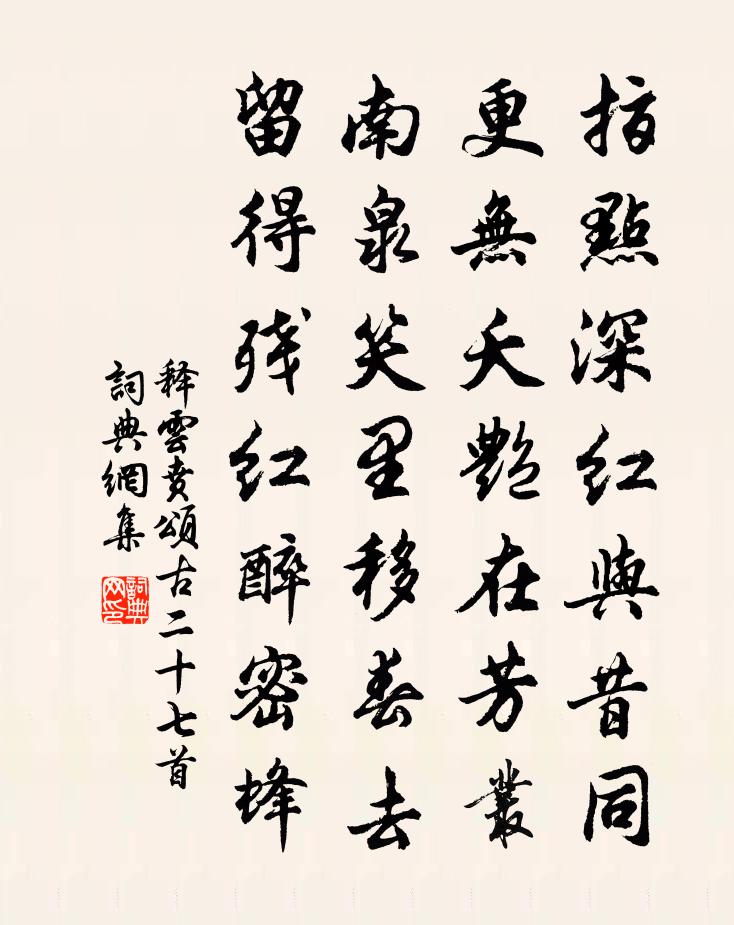 指點深红與昔同
更無夭艷在芳叢
南泉笑里移春去
留得残红醉密蜂
释雲賁頌古二十七首
詞典網集
詞典网印